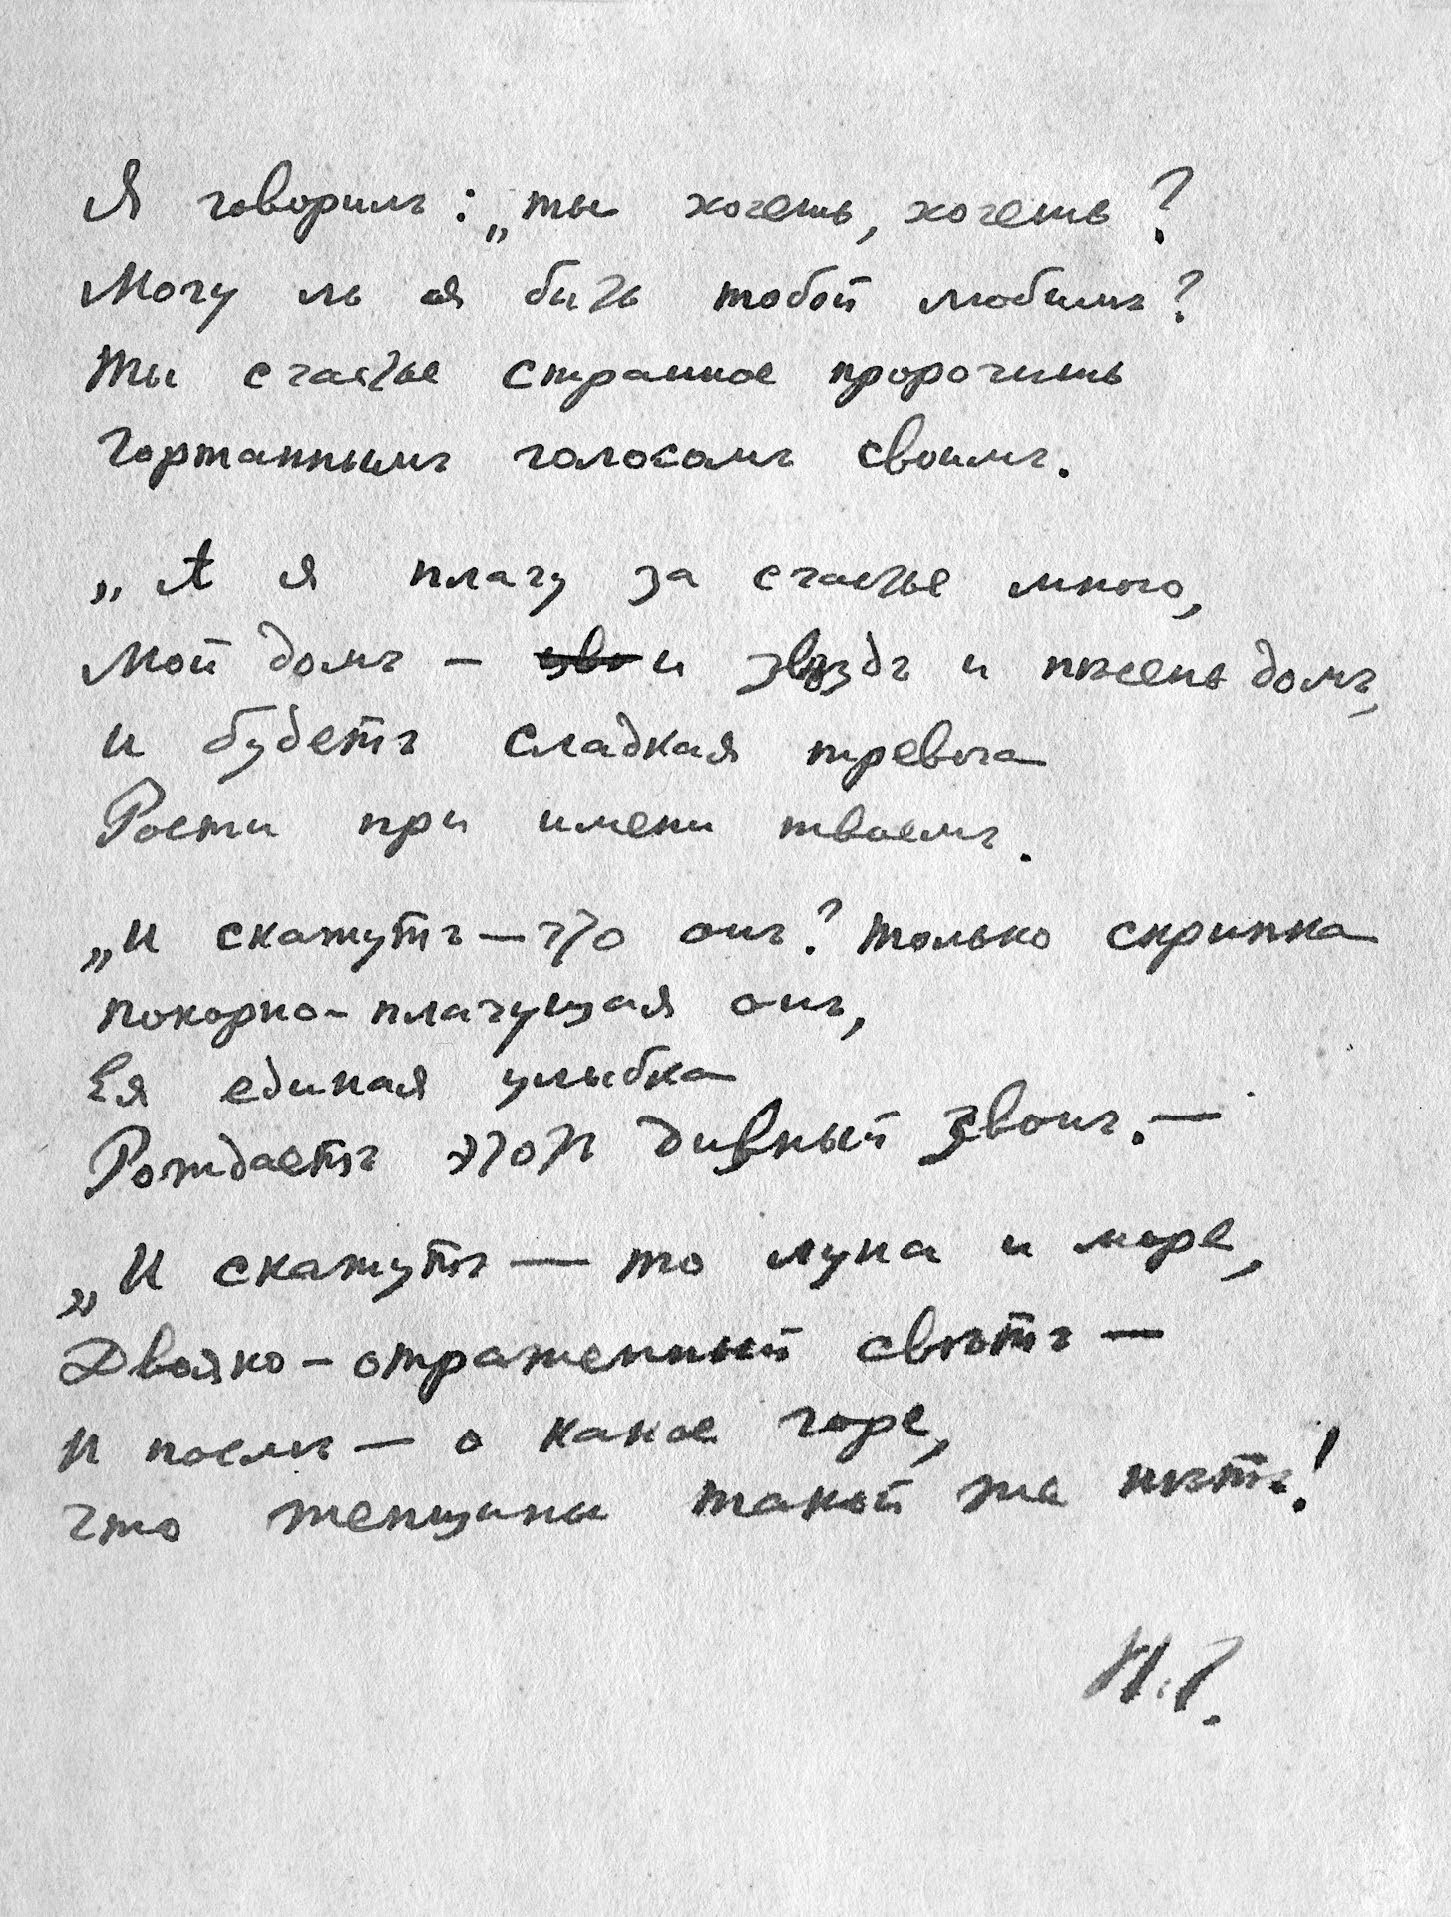 Я говорилъ: „ты хочешь, хочешь?
Могу ль я быть тобой любимъ?
Ты счастье странное пророчишь
Гортаннымъ голосомъ своимъ.
„А я плачу за счастье много,
Мой домъ — и звѣздъ и пѣсень домъ,
И будетъ сладкая тревога
Рости при имени твоемъ.
„И скажутъ — что онъ? Только скрипка
покорно-плачущая онъ,
Ея единая улыбка
Рождаетъ этотъ дивный звонъ. —
„И скажутъ — то луна и море,
Двояко-отраженный свѣтъ —
И послѣ — о какое горе,
Что женщины такой же нѣтъ!
Н.Г.